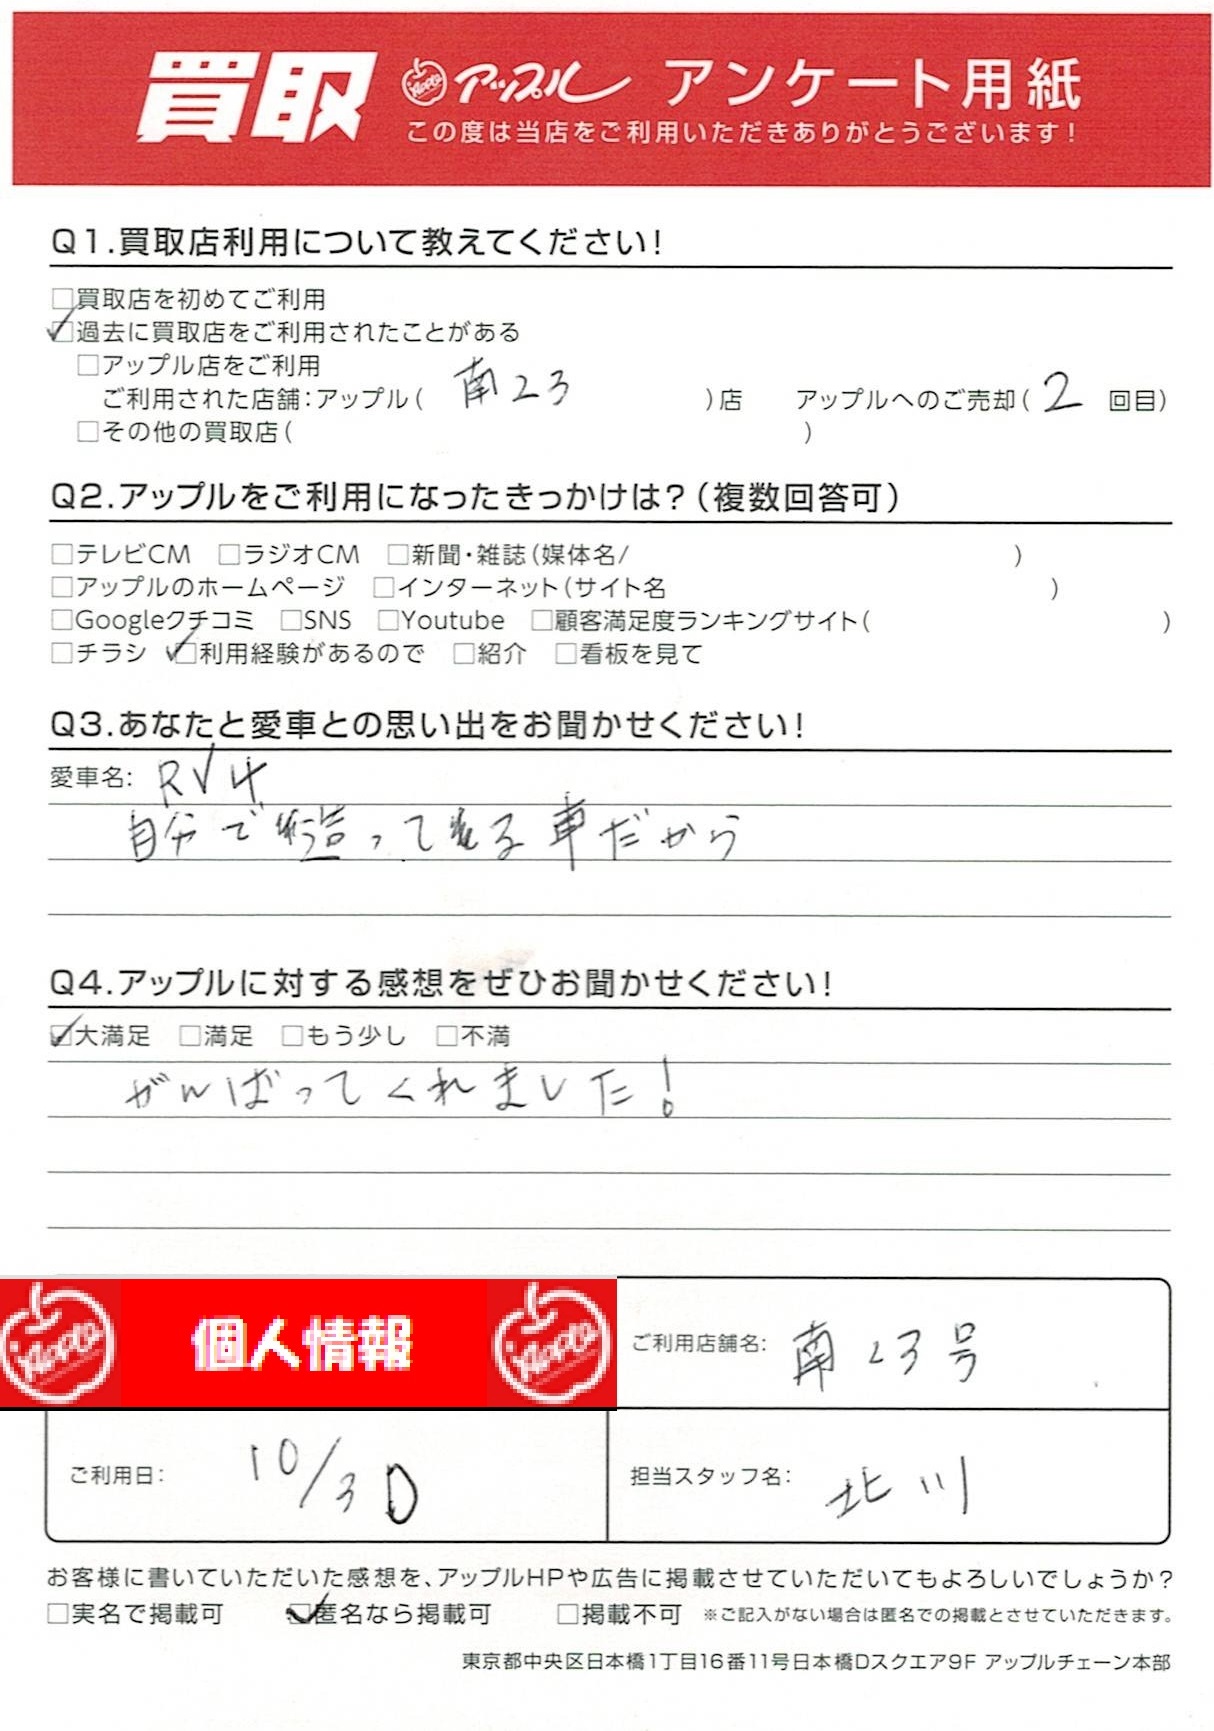 買取 Apple アップル アンケート用紙
この度は当店をご利用いただきありがとうございます!
Q1.買取店利用について教えてください!
□買取店を初めてご利用
☑過去に買取店をご利用されたことがある
□アップル店をご利用
ご利用された店舗:アップル( 南23 )店 アップルへのご売却( 2 回目)
□その他の買取店( )
Q2.アップルをご利用になったきっかけは?(複数回答可)
□テレビCM □ラジオCM □新聞・雑誌(媒体名/ )
□アップルのホームページ □インターネット(サイト名 )
□Googleクチコミ □SNS □Youtube □顧客満足度ランキングサイト( )
□チラシ ☑利用経験があるので □紹介 □看板を見て
Q3.あなたと愛車との思い出をお聞かせください!
愛車名: RV4
自分で造ってる車だから
Q4.アップルに対する感想をぜひお聞かせください!
☑大満足 □満足 □もう少し □不満
がんばってくれました!
Apple 個人情報 Apple
ご利用店舗名: 南23号
ご利用日: 10/30
担当スタッフ名: 北川
お客様に書いていただいた感想を、アップルHPや広告に掲載させていただいてもよろしいでしょうか?
□実名で掲載可 ☑匿名なら掲載可 □掲載不可 ※ご記入がない場合は匿名での掲載とさせていただきます。
東京都中央区日本橋1丁目16番11号日本橋Dスクエア9F アップルチェーン本部